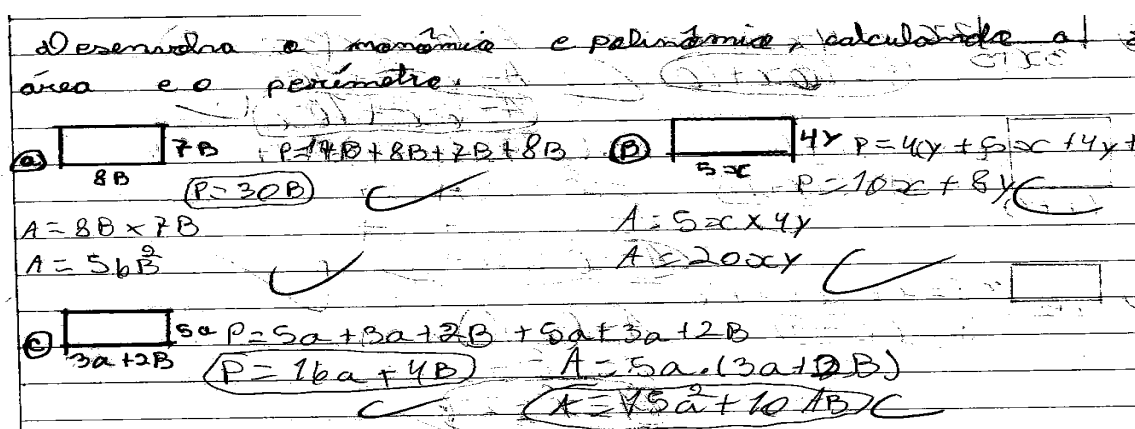 Desenvolva o monômio e polinômio, calculando a
área e o perímetro.
a) 7B P=7B+8B+7B+8B
8B P=30B
A=8B×7B
A=56B²
B) 4y P=4y+5x+4y+
5x P=10x+8y
A=5x×4y
A=20xy
c) 5a P=5a+3a+2B+5a+3a+2B
3a+2B P=16a+4B
A=5a.(3a+2B)
A=15a²+10AB